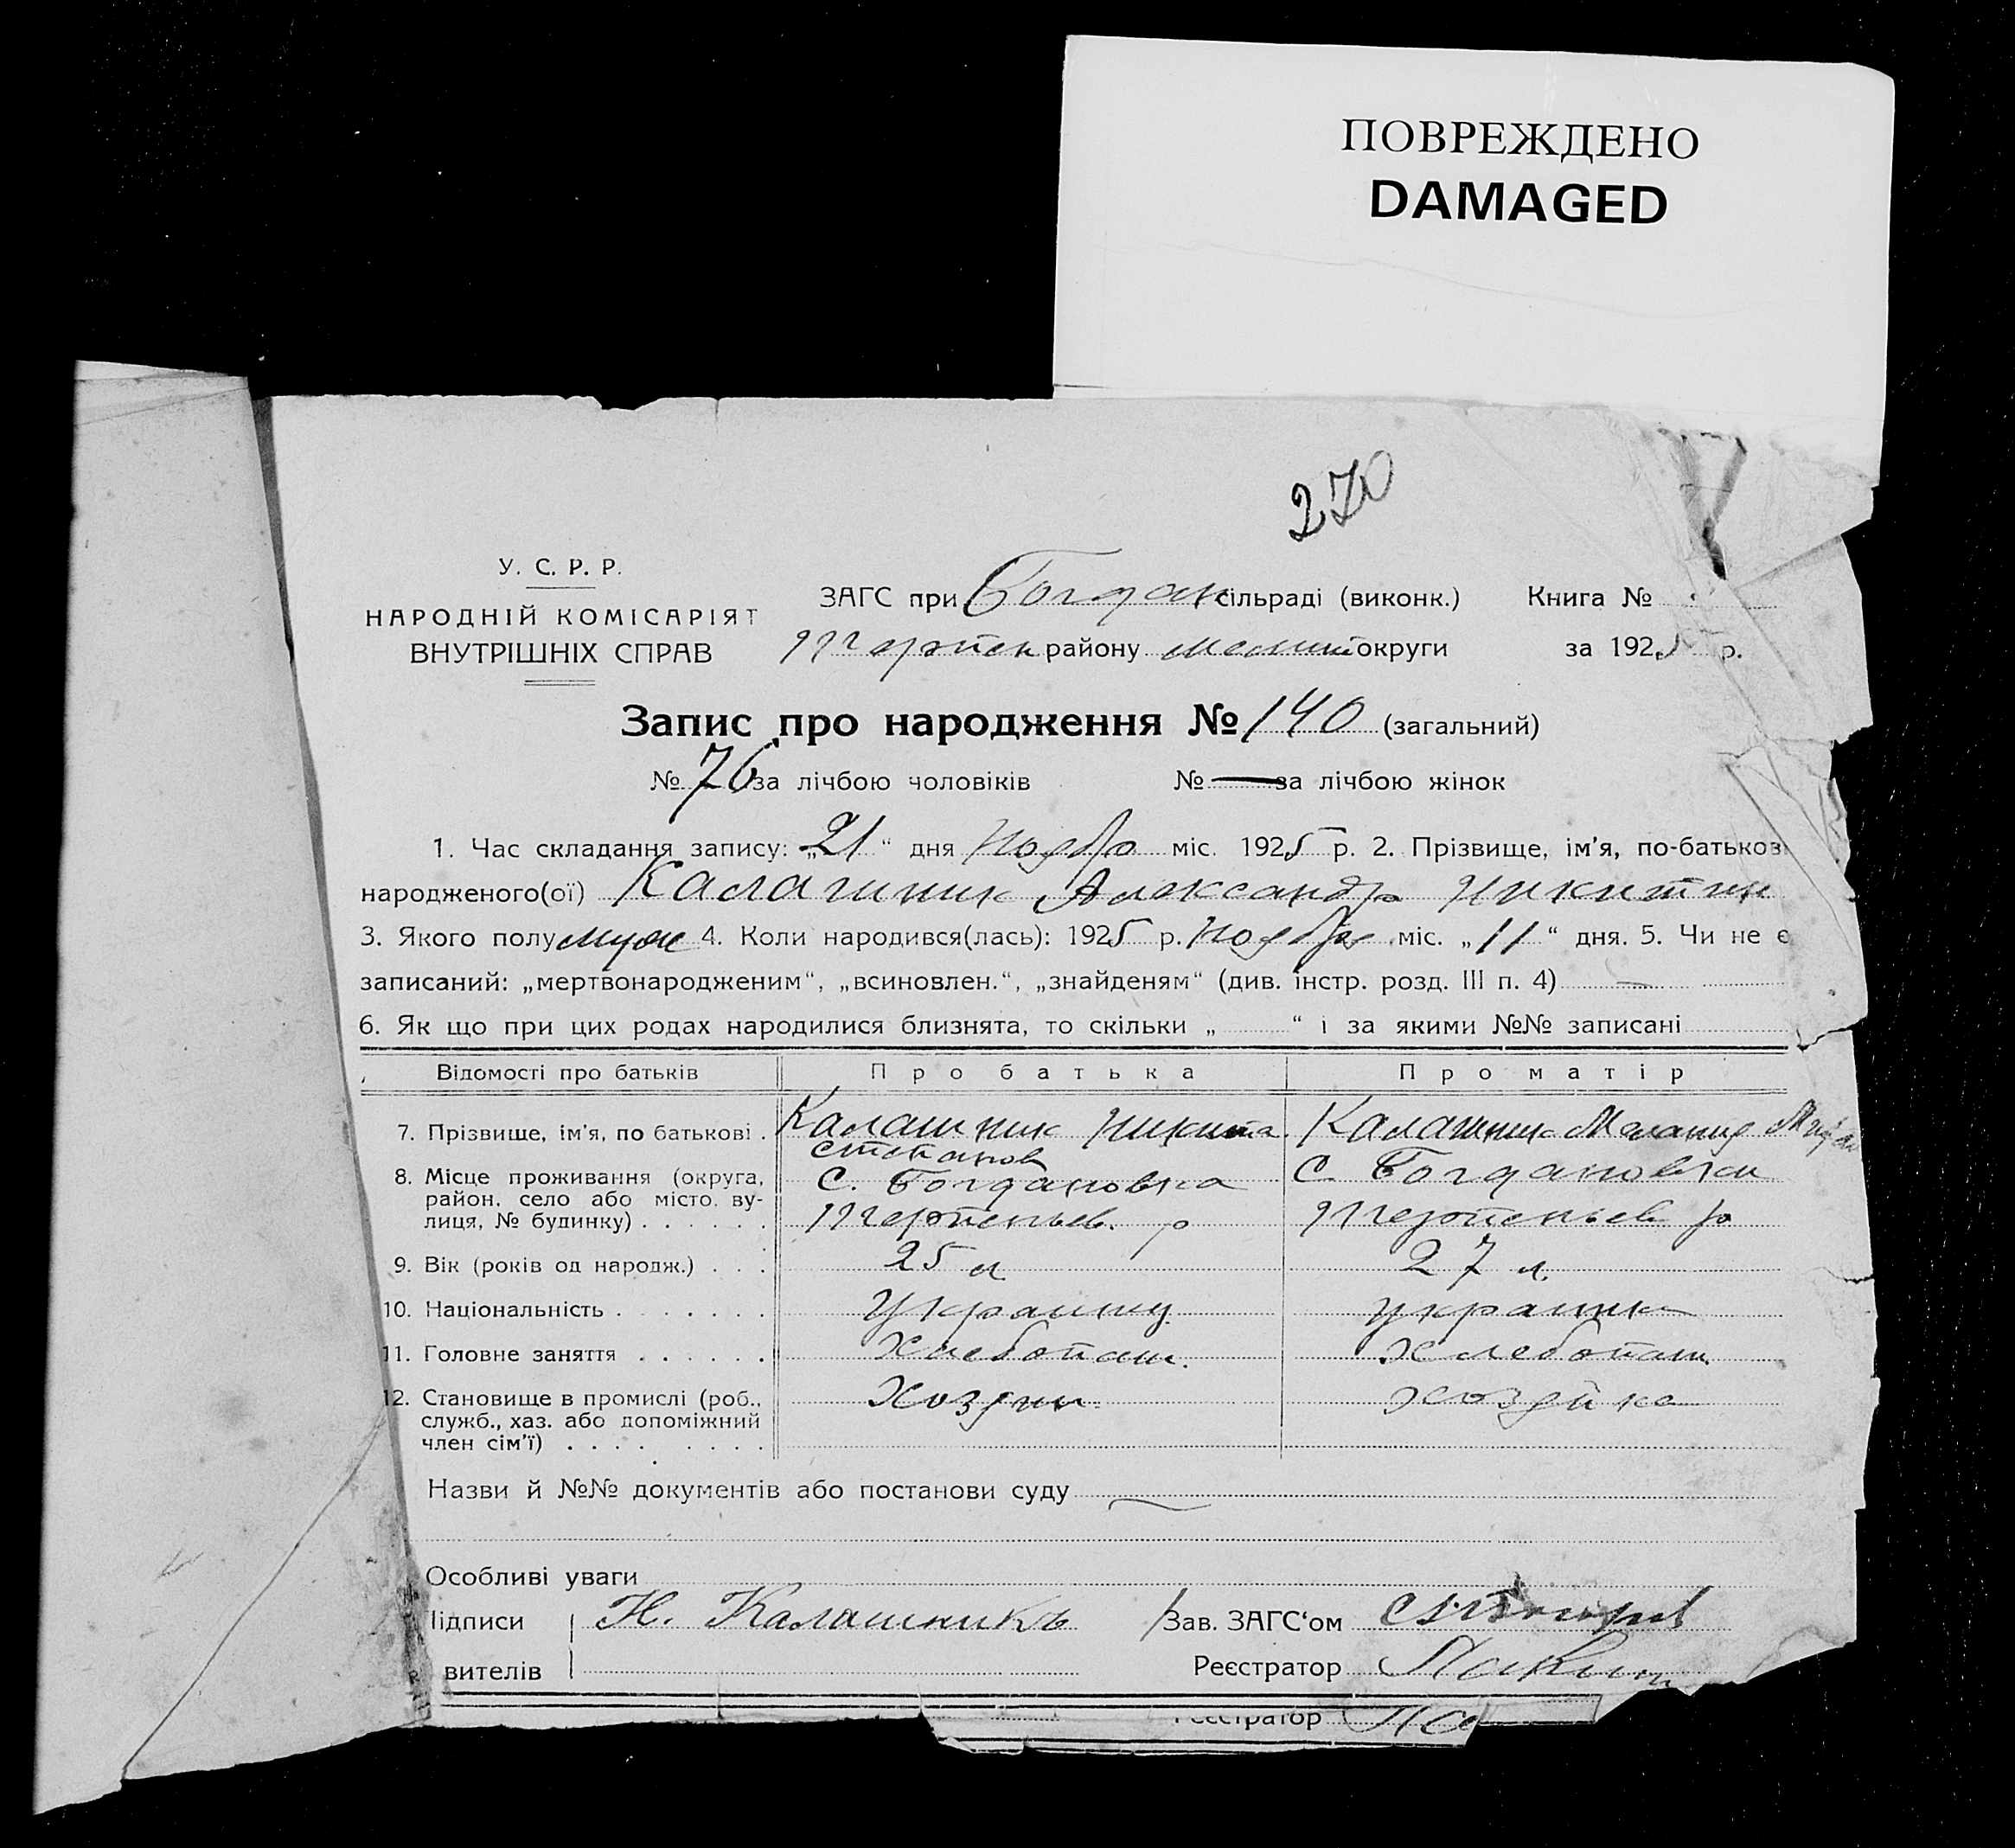 ПОВРЕЖДЕНО
DAMAGED
270
У. С. Р. Р.
НАРОДНІЙ КОМІСАРІЯТ
ВНУТРІШНІХ СПРАВ
ЗАГС при Богдан сільраді (виконк.) Книга №
району Мелит округи за 1925 р.
Запис про народження № 140 (загальний)
№ 76 за лічбою чоловіків № — за лічбою жінок
1. Час складання запису: „21“ дня Ноября міс. 1925 р. 2. Прізвище, ім'я, по-батькові
народженого(ої) Калашник Александр Никитин
3. Якого полу муж 4. Коли народився(лась): 1925 р. Ноября міс. „11“ дня. 5. Чи не є
записаний: „мертвонародженим“, „всиновлен.“, „знайденям“ (див. інстр. розд. III п. 4) —
6. Як що при цих родах народилися близнята, то скільки „ “ і за якими №№ записані
Відомості про батьків Про батька Про матір
7. Прізвище, ім'я, по батькові . Калашник Никита Калашник Мелания
Степанов
8. Місце проживання (округа, с. Богдановка с. Богдановка
район, село або місто, ву-
лиця, № будинку) . . . . . . р р
9. Вік (років од народж.) . . . 25 л 27 л.
10. Національність . . . . . . . Украинц украинка
11. Головне заняття . . . . . . Хлебопаш. Хлебопаш.
12. Становище в промислі (роб., Хозяин хозяйка
служб., хаз. або допоміжний
член сім'ї) . . . . . . . .
Назви й №№ документів або постанови суду —
Особливі уваги
Підписи Н. Калашникъ Зав. ЗАГС'ом
вителів Реєстратор
Реєстратор